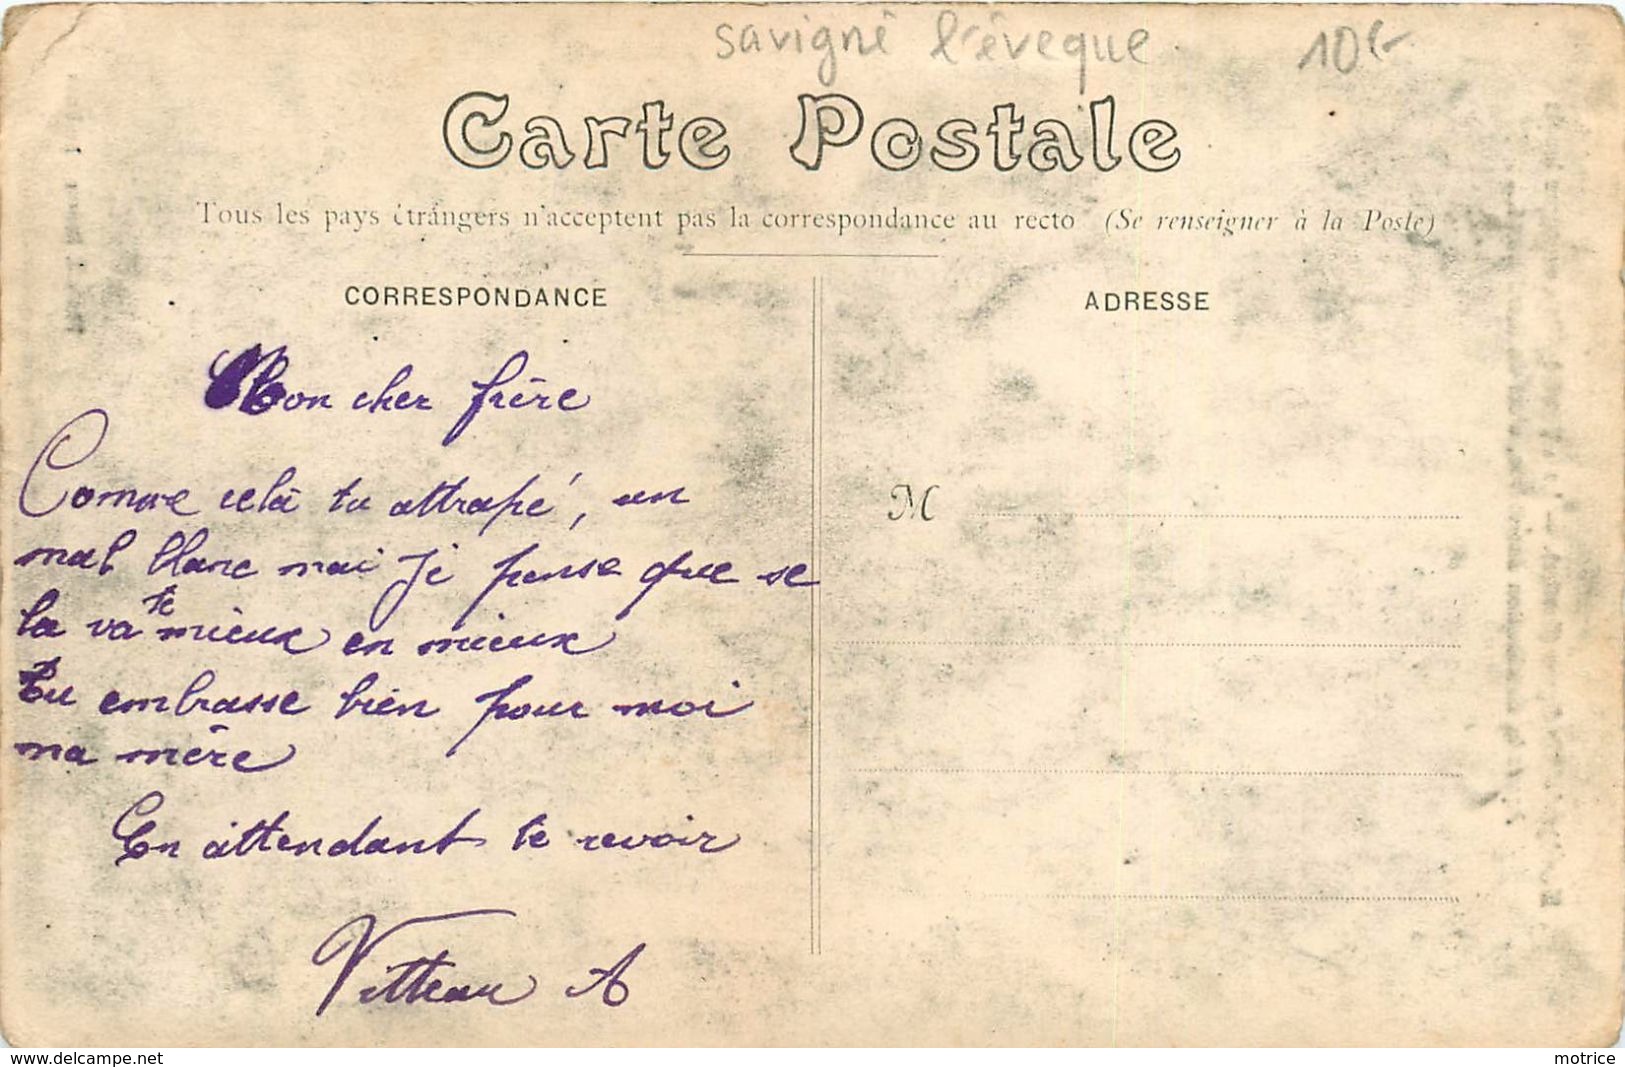 savigné l'éveque 10€
Carte Postale
Tous les pays étrangers n'acceptent pas la correspondance au recto (Se renseigner à la Poste)
CORRESPONDANCE
ADRESSE
Mon cher frère
Comme celà tu attrapé, un
mal blanc mai je pense que se
la va te mieux en mieux
tu embrasse bien pour moi
ma mère
En attendant te revoir
Vitteau A
M
www.delcampe.net
motrice